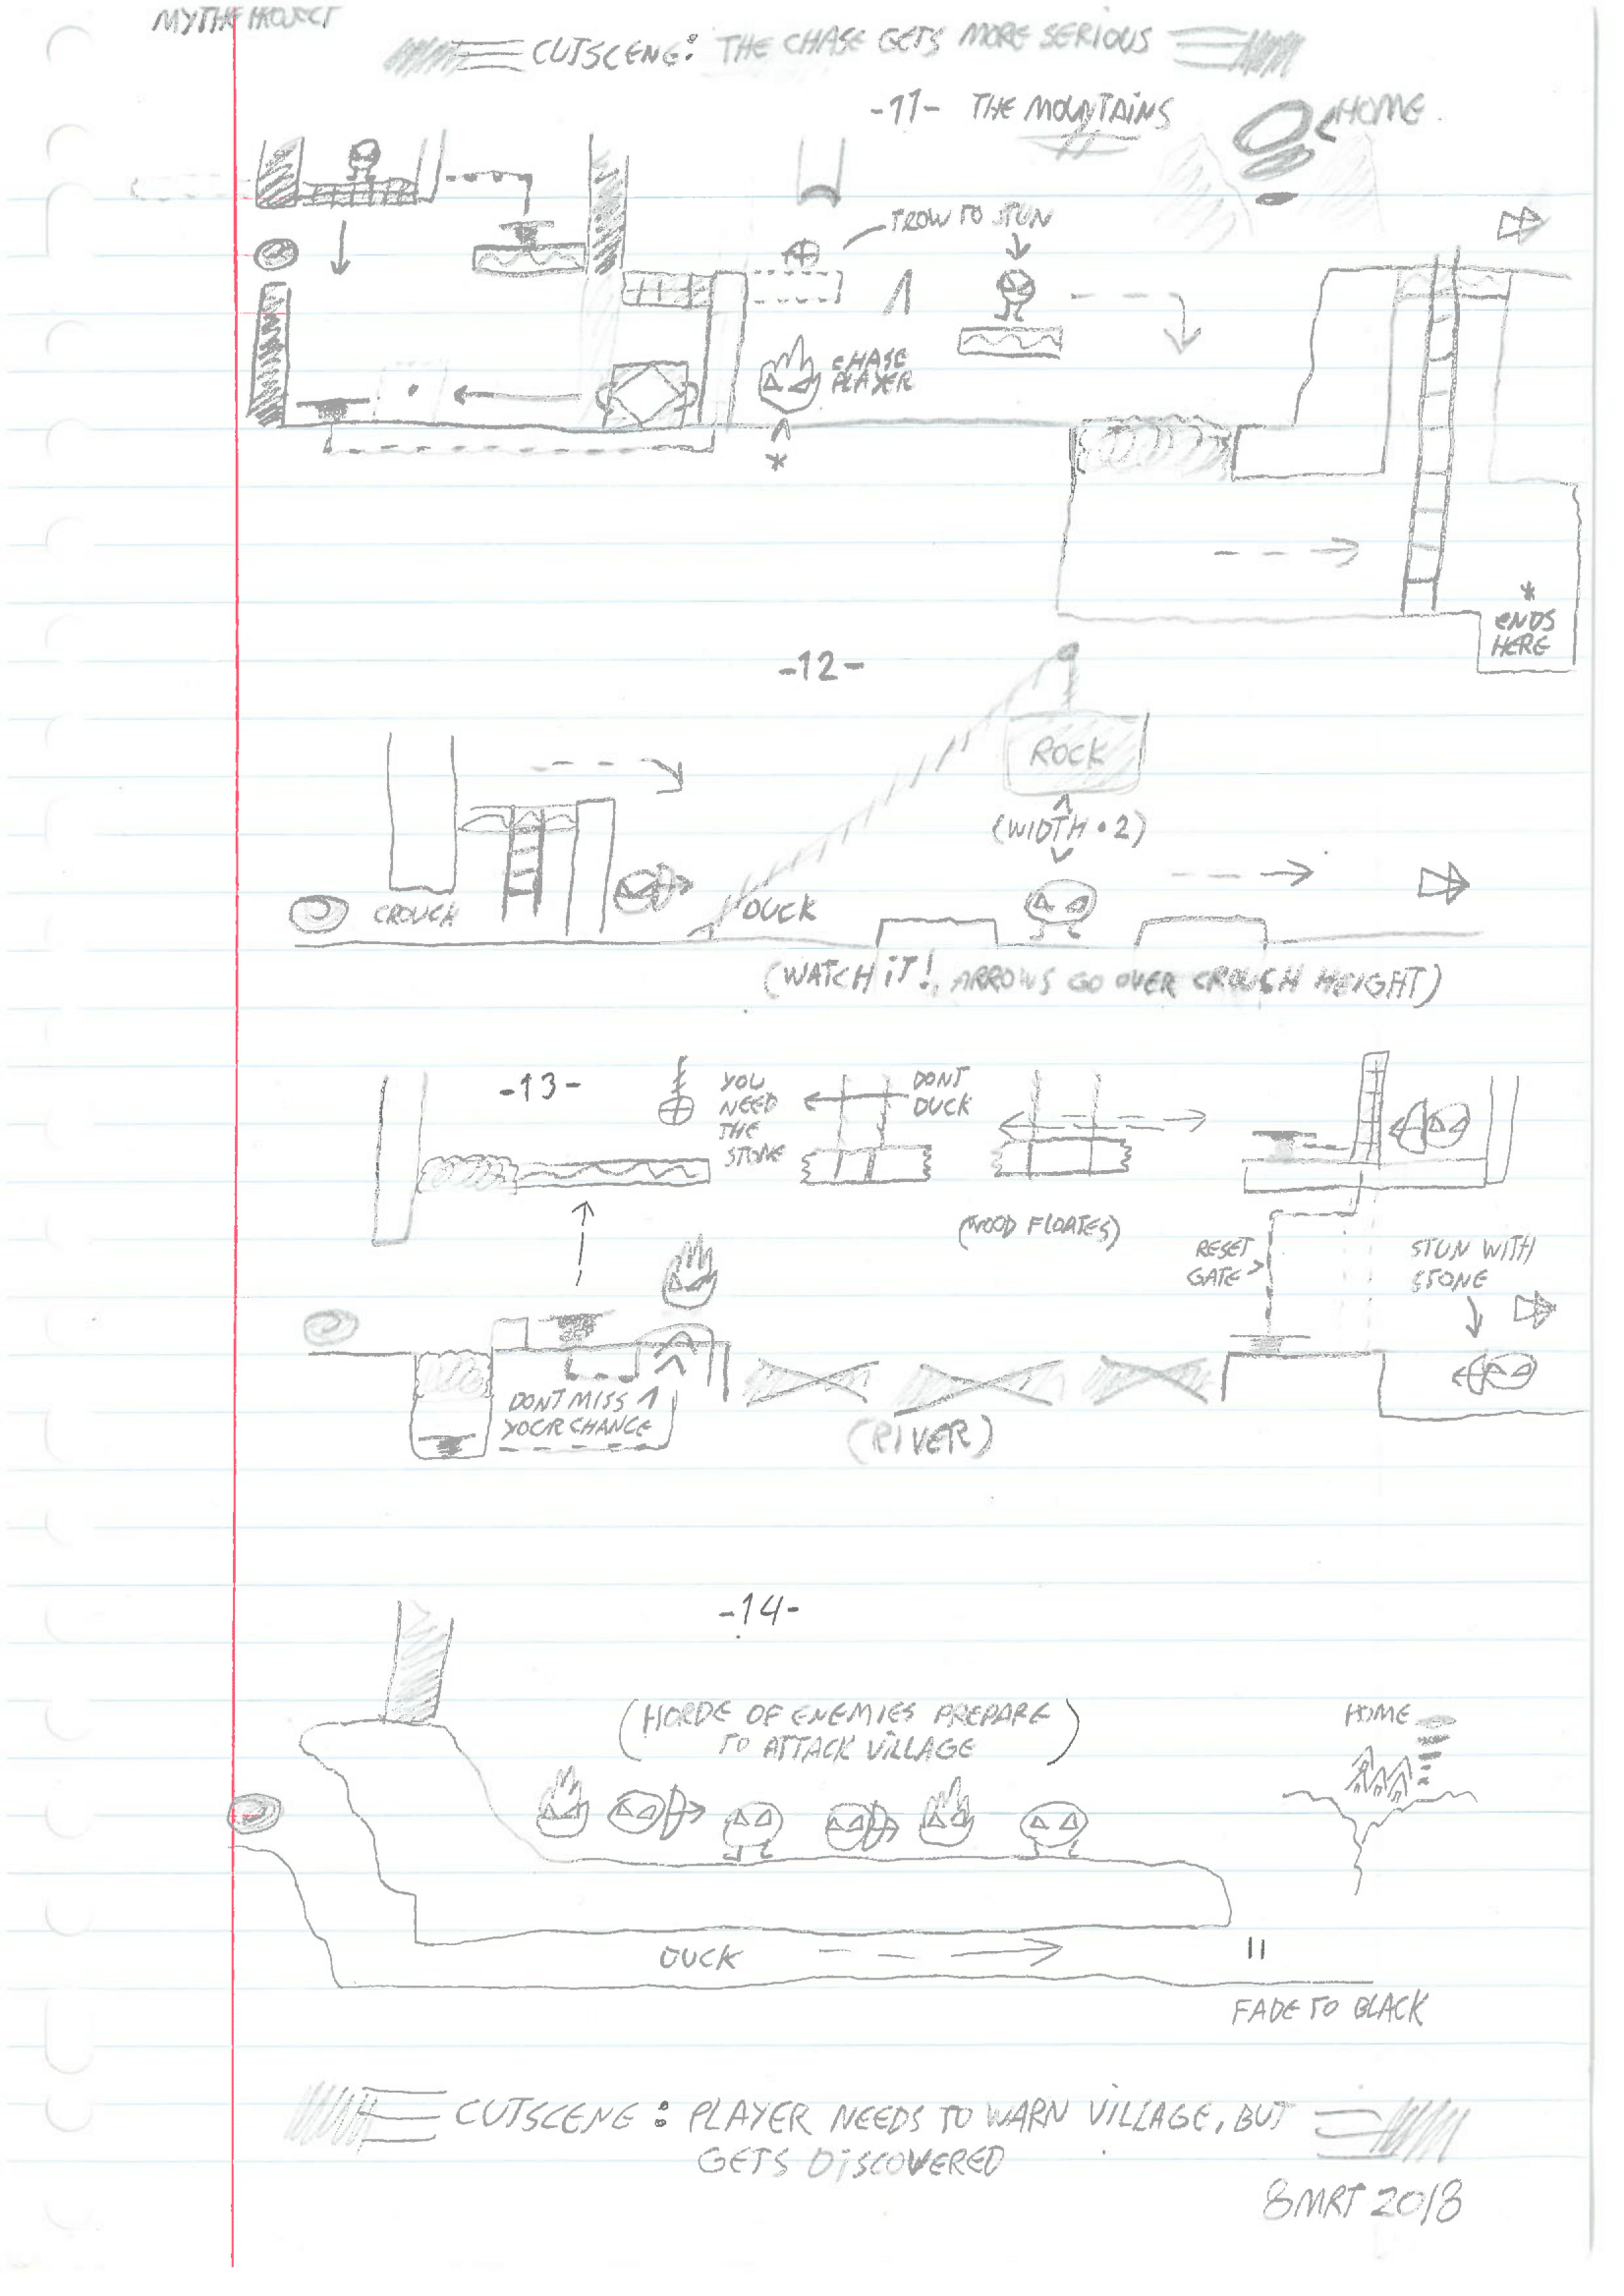 MYTHE PROJECT
CUTSCENE: THE CHASE GETS MORE SERIOUS
-11- THE MOUNTAINS
HOME
TROW TO STUN
CHASE
PLAYER
*
*
ENDS
HERE
-12-
ROCK
(WIDTH • 2)
CROUCH
DUCK
(WATCH iT! ARROWS GO OVER CROUCH HEIGHT)
-13-
YOU
NEED
THE
STONE
DONT
DUCK
(WOOD FLOATES)
RESET
GATE >
STUN WITH
STONE
DONT MISS
YOUR CHANCE
(RIVER)
-14-
(HORDE OF ENEMIES PREPARE
TO ATTACK VILLAGE)
HOME
DUCK
FADE TO BLACK
CUTSCENE: PLAYER NEEDS TO WARN VILLAGE, BUT
GETS DiSCOVERED
8 MRT 2018